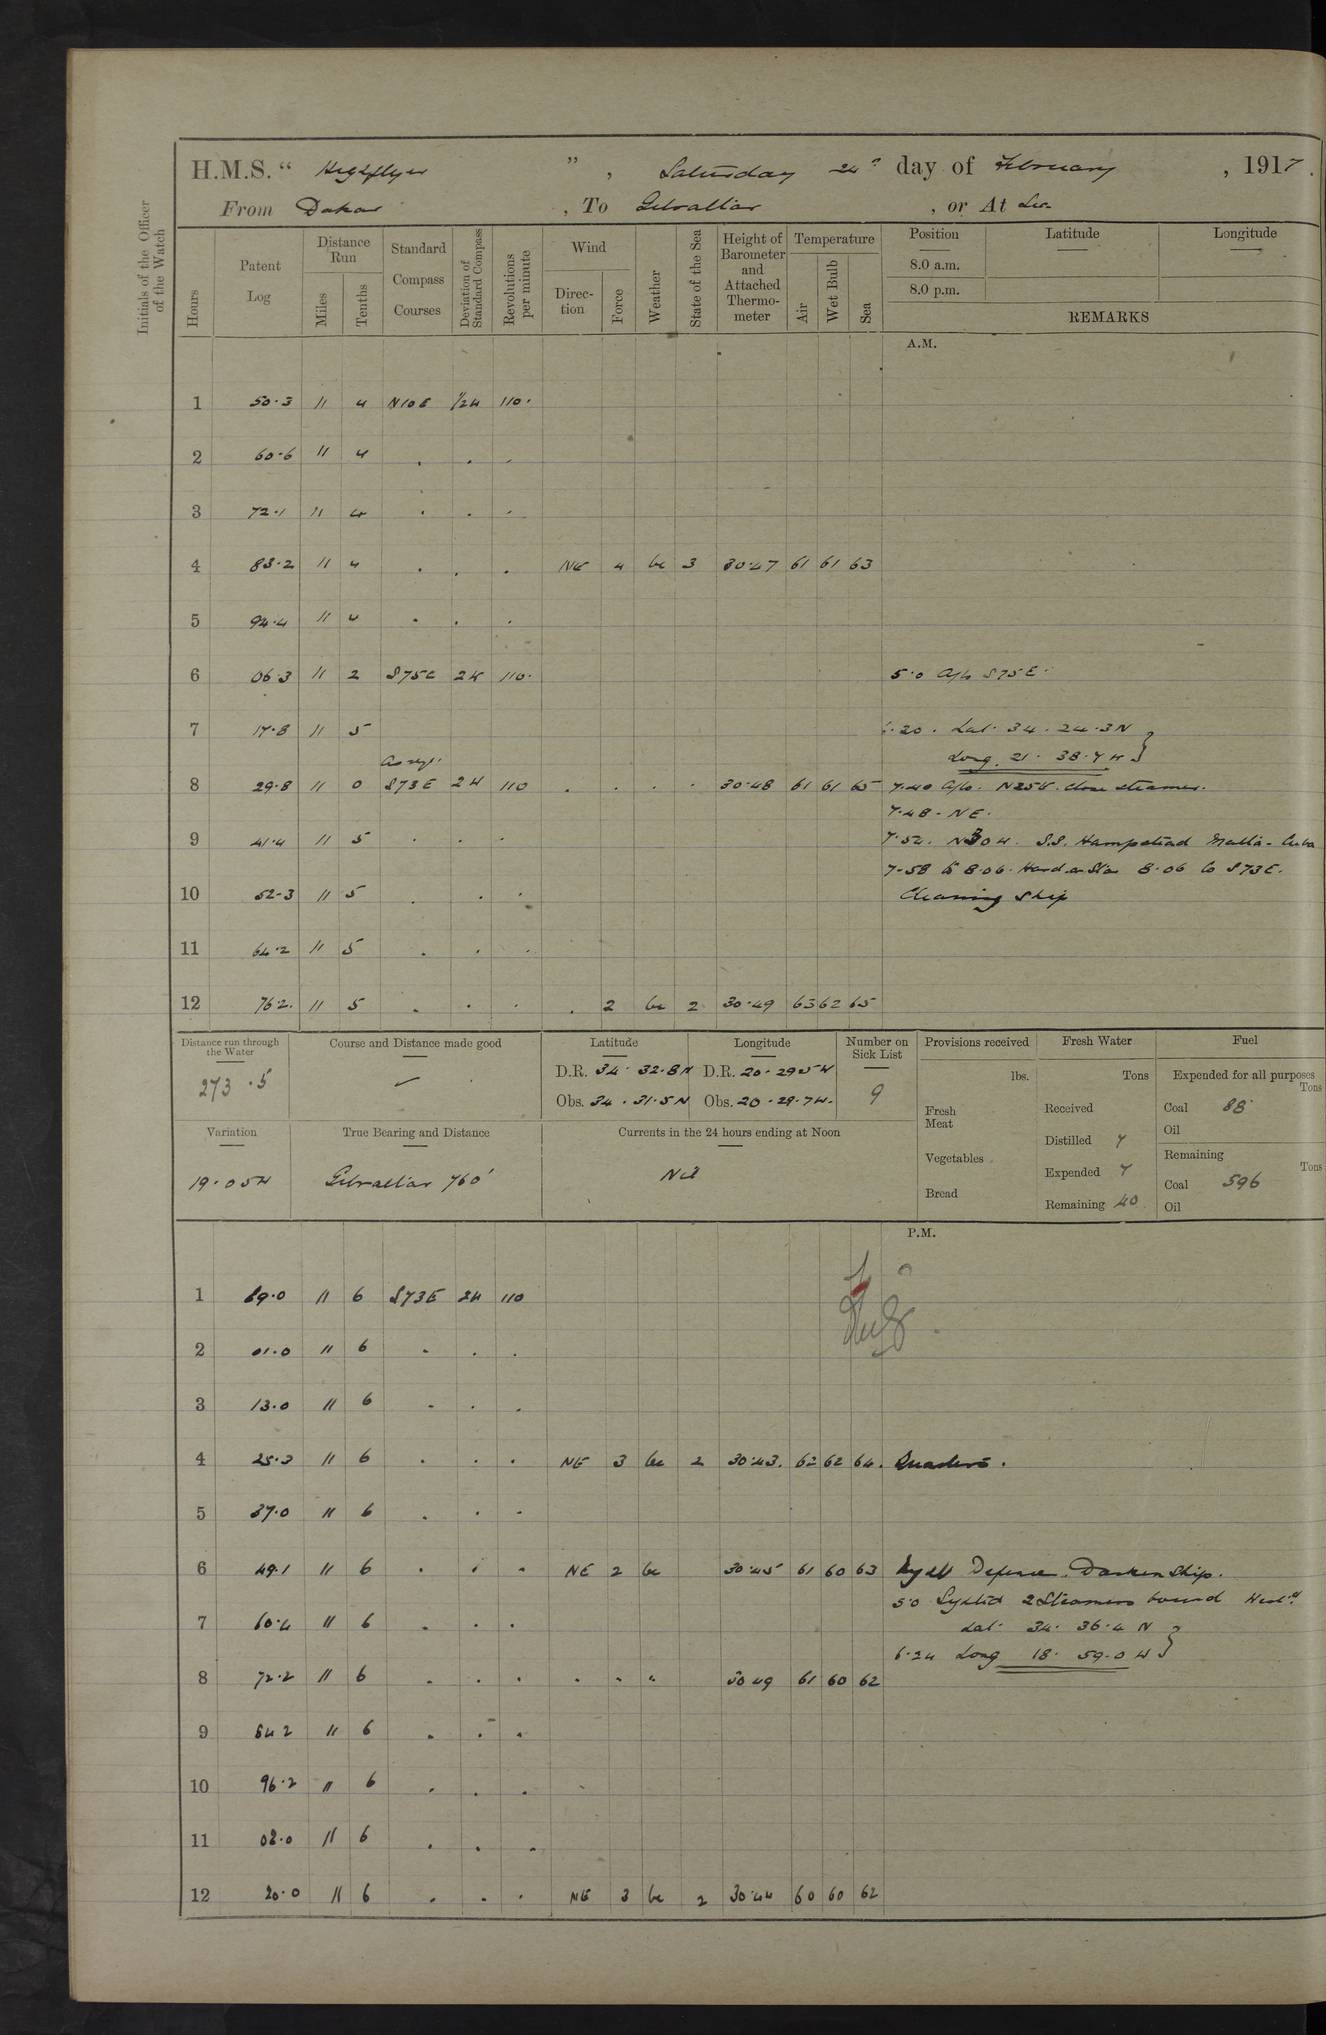 H.M.S. “ Highflyer ” , Saturday 24th day of February , 1917.
From Dakar , To Gibraltar , or At Sea
Initials of the Officer of the Watch
Hours
Patent Log
Distance Run
Miles
Tenths
Standard Compass Courses
Deviation of Standard Compass
Revolutions per minute
Wind
Direction
Force
Weather
State of the Sea
Height of Barometer and Attached Thermometer
Temperature
Air
Wet Bulb
Sea
Position
8.0 a.m.
8.0 p.m.
Latitude
Longitude
REMARKS
A.M.
1 50.3 11 4 N10E 1/2W 110.
2 60.6 11 4 . . .
3 72.1 11 4 . . .
4 83.2 11 4 . . . NE 4 bc 3 30.47 61 61 63
5 94.4 11 4 . . .
6 06.3 11 2 S75E 2W 110. 5.0 A/c S75E.
7 17.8 11 5 6.20. Lat. 34. 24.3N
Long. 21. 38.7W
As req.
8 29.8 11 0 S73E 2W 110 . . . . 30.48 61 61 65 7.40 A/c. N25W. close steamer.
7.48 - NE.
9 41.4 11 5 . . . 7.52. N30W. S.S. Hampstead Malta - Cuba
7-58 to 8.06. Hard a Star 8.06 to S73E.
10 52.3 11 5 . . . Cleaning Ship
11 64.2 11 5 . . .
12 76.2. 11 5 . . . . 2 bc 2 30.49 63 62 65
Distance run through the Water
273.5
Course and Distance made good
Latitude
D.R. 34. 32.8N
Obs. 34. 31.5N
Longitude
D.R. 20. 29.5W
Obs. 20. 29.7W.
Number on Sick List
9
Provisions received
lbs.
Fresh Meat
Vegetables
Bread
Fresh Water
Tons
Received
Distilled 7
Expended 7
Remaining 40
Fuel
Expended for all purposes
Tons
Coal 88
Oil
Remaining
Tons
Coal 596
Oil
Variation
19.05W
True Bearing and Distance
Gibraltar 760'
Currents in the 24 hours ending at Noon
Nil
P.M.
1 89.0 11 6 S73E 2W 110
2 01.0 11 6 . . .
3 13.0 11 6 . . .
4 25.3 11 6 . . . NE 3 bc 2 30.43. 62 62 64. Quarters.
5 37.0 11 6 . . .
6 49.1 11 6 . . . NE 2 bc 30.45 61 60 63 Night Defence. Darken Ship.
5.0 Sighted 2 Steamers bound West'd
7 60.4 11 6 . . . Lat. 34. 36.4 N
6.24 Long 18. 59.0 W
8 72.2 11 6 . . . . . " 30 49 61 60 62
9 84 2 11 6 . . .
10 96.2 11 6 . . .
11 08.0 11 6 . . .
12 20.0 11 6 . . . NE 3 bc 2 30.44 60 60 62